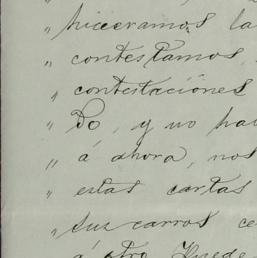 " hicieramos la
" contestamos,
" contestaciónes
" Do, y no ha
" á ahora, nos
" estas cartas
" sus carros ce
á otro Puede